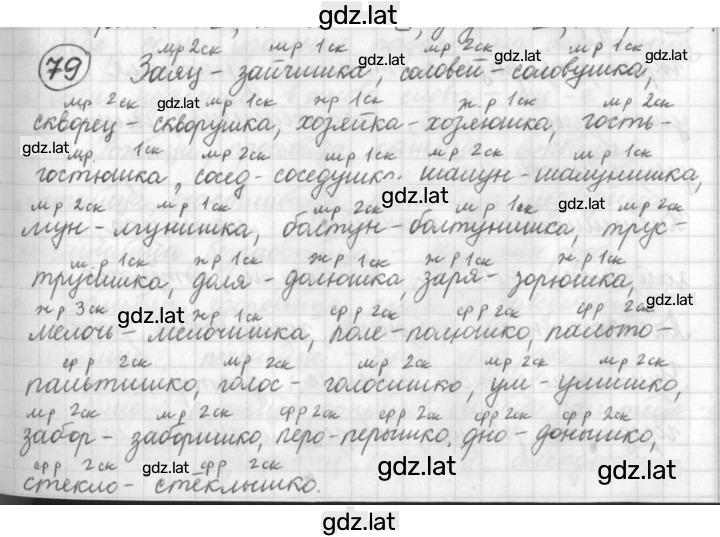 gdz.lat
79 мр 2ск мр 1ск мр 2ск мр 1ск gdz.lat
Заяц - зайчишка, соловей - соловушка,
мр 2ск gdz.lat мр 1ск жр 1ск жр 1ск мр 2ск
скворец - скворушка, хозяйка - хозяюшка, гость -
gdz.lat мр 1ск мр 2ск мр 1ск мр 2ск мр 1ск
гостюшка, сосед - соседушка, шалун - шалунишка,
gdz.lat
мр 2ск мр 1ск мр 2ск мр 1ск gdz.lat мр 2ск
лгун - лгунишка, болтун - болтунишка, трус -
мр 1ск жр 1ск жр 1ск жр 1ск жр 1ск
трусишка, доля - долюшка, заря - зорюшка,
жр 3ск gdz.lat жр 1ск ср р 2ск ср р 2ск ср р 2ск gdz.lat
мелочь - мелочишка, поле - полюшко, пальто -
ср р 2ск мр 2ск мр 2ск мр 2ск мр 2ск
пальтишко, голос - голосишко, ум - умишко,
мр 2ск мр 2ск ср р 2ск ср р 2ск ср р 2ск ср р 2ск
забор - заборишко, перо - перышко, дно - донышко,
ср р 2ск gdz.lat ср р 2ск gdz.lat gdz.lat
стекло - стёклышко.
gdz.lat